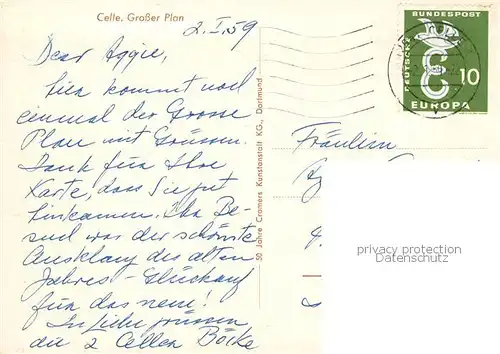 Celle. Großer Plan
2.I.59
Dear Aggie,
hier kommt noch
einmal der Grosse
Plan mit Grüssen.
Dank für Ihre
Karte, dass Sie gut
hinkamen. Ihr Be-
such war der schönste
Ausklang des alten
Jahres - Glückauf
für das neue!
In Liebe grüssen
die 2 Celler Böcke
50 Jahre Cramers Kunstanstalt KG., Dortmund
DEUTSCHE BUNDESPOST
10
EUROPA
Fräulein
privacy protection
Datenschutz